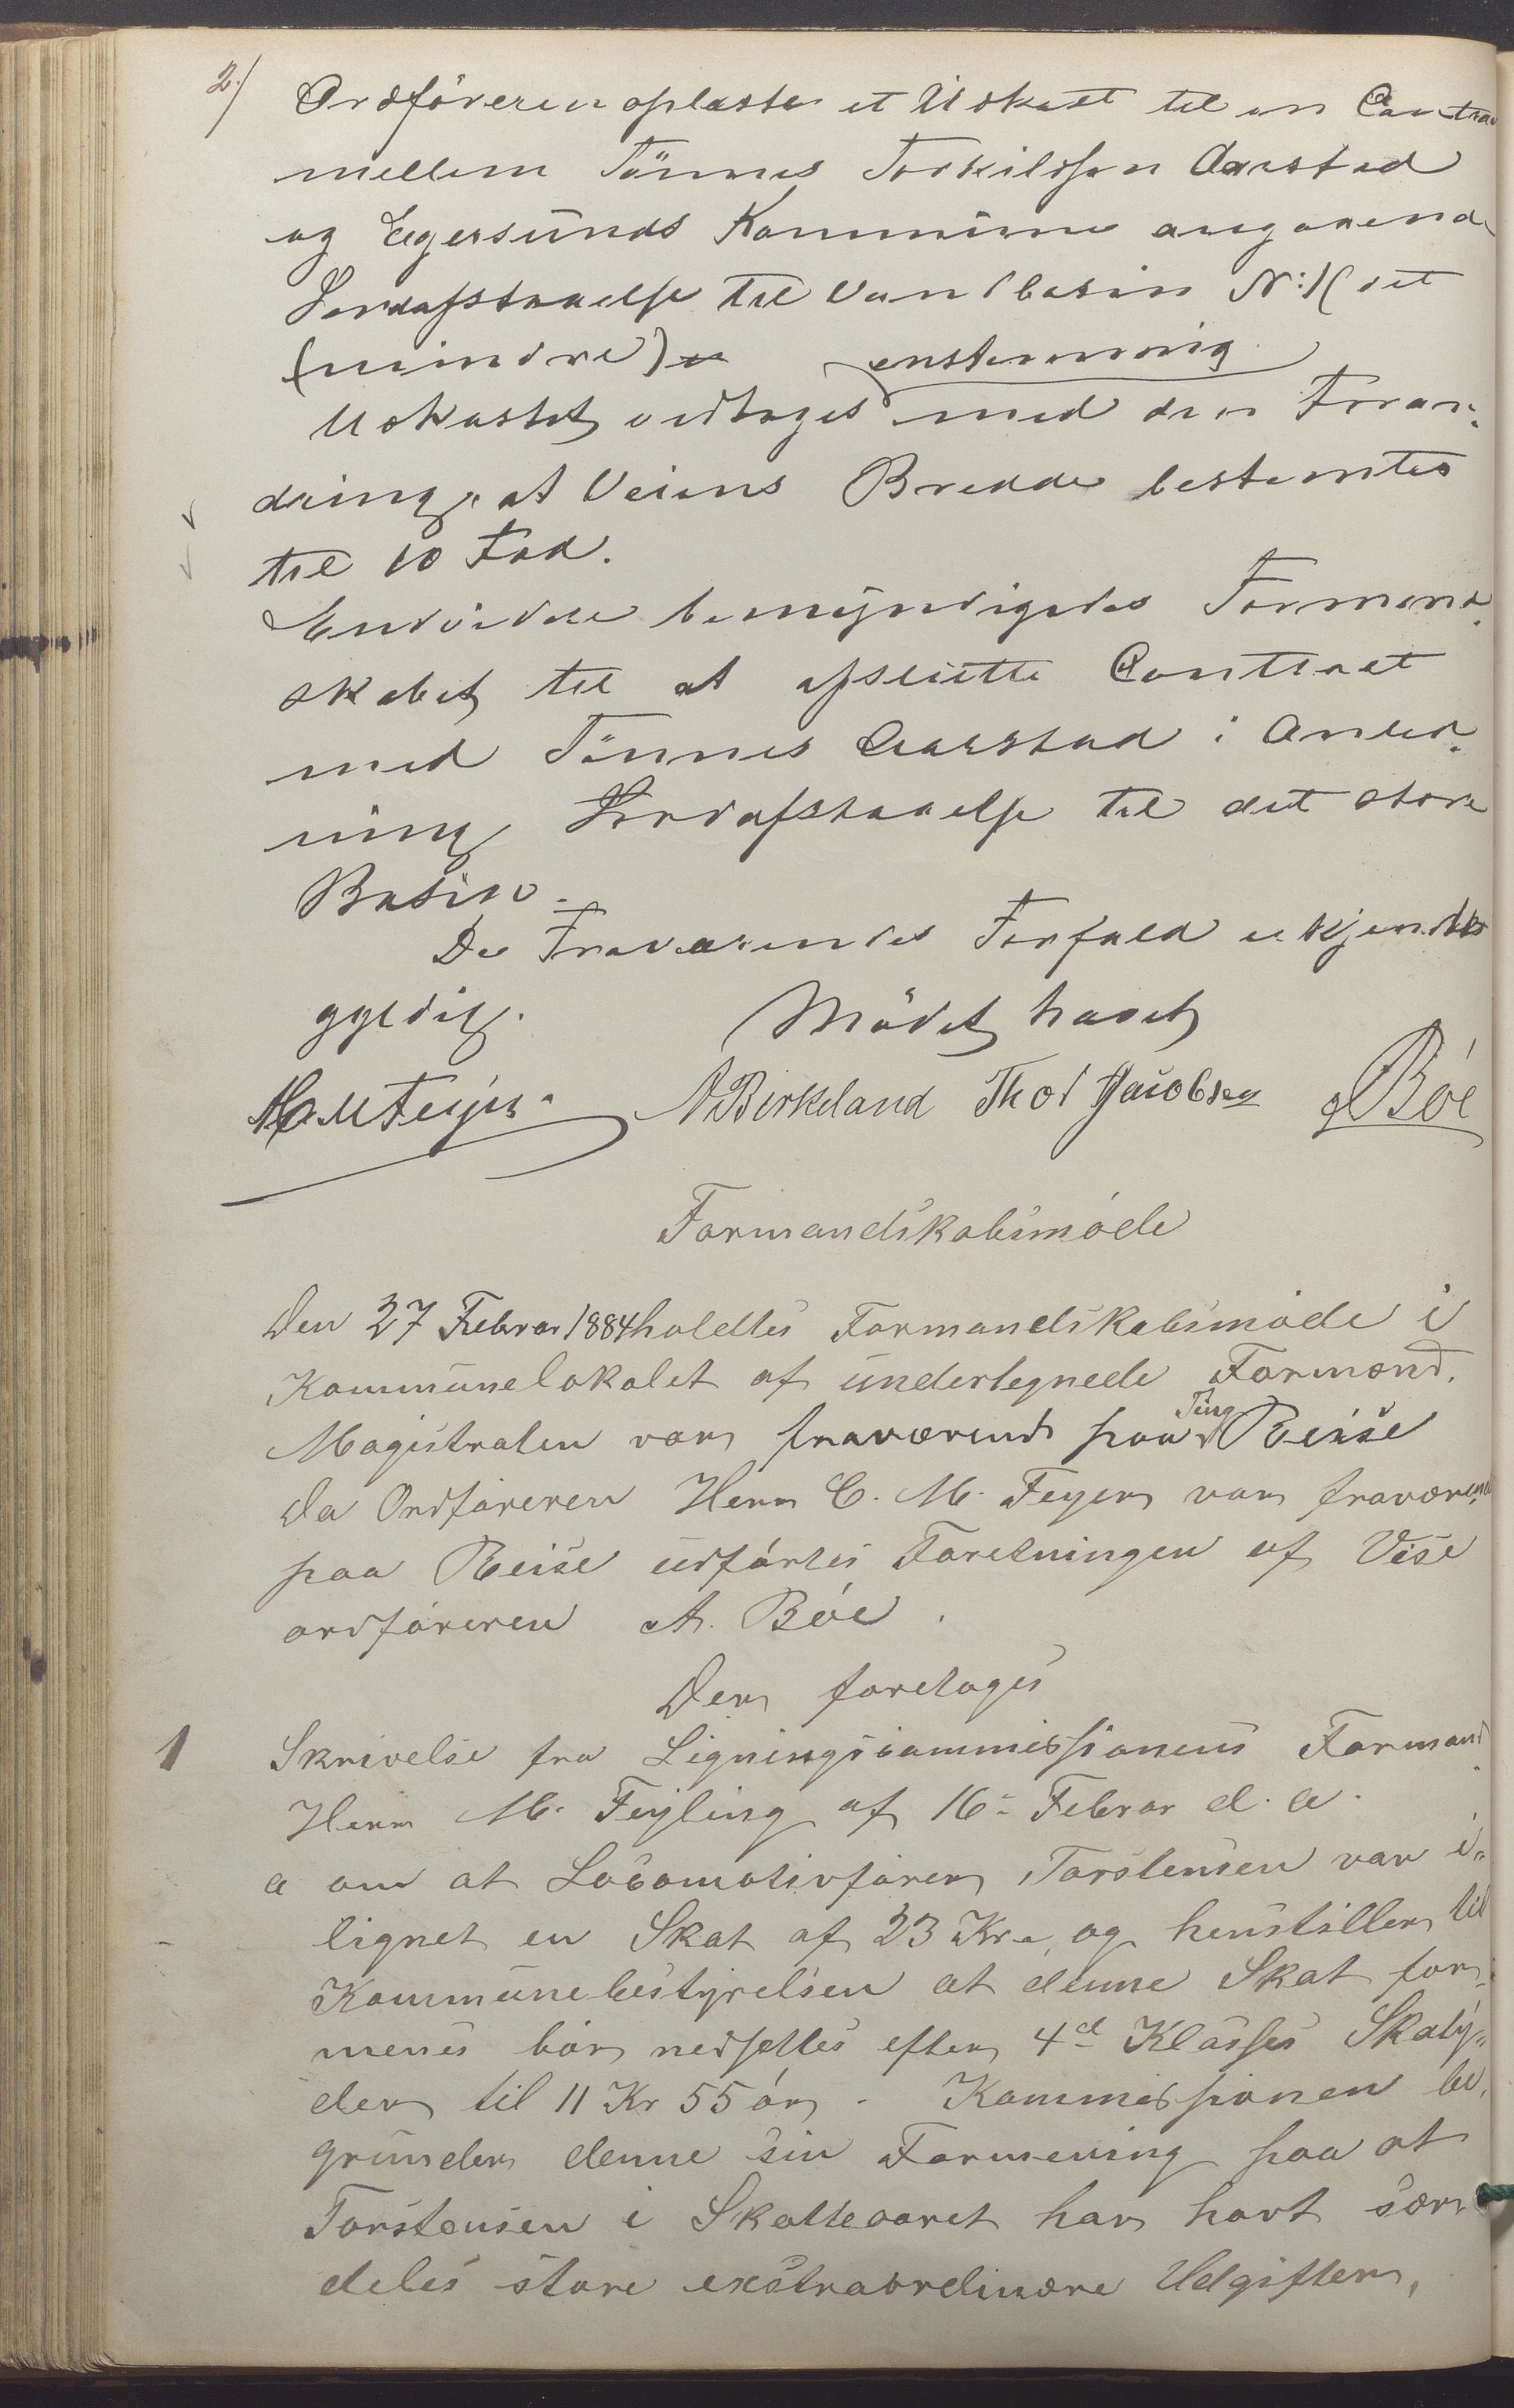 2./ Ordföreren oplæste et Udkast til en Contra
mellem Tönnes Torkildsen Aarstad
og Egersunds Kommune angaaend
Jordafstaaelse til Vandbasin N: 1 (det
(mindre)
enstemmig
Udkastet vedtoges med den Foran-
dring, at Veiens Bredde bestemtes
til 10 Fod.
Endvidere bemyndigedes Formand-
skabet til at afslutte Contract
med Tönnes Aarstad i Anled-
ning Jordafstaaelse til det store
Basin.
De Fraværendes Forfald erkjendtes
gyldig. Mödet hævet
A Birkeland Thod Jacobsen A Bóe
Formandskabsmóde
Den 27 Februar 1884 holdtes Formandskabsmóde i
Kommunelokalet af undertegnede Formænd.
Magistraten var fraværende paa Ting Reise
da Ordföreren Herr C. M. Feyer var fraværend
paa Reise udfórtes Foretningen af Vise
ordfóreren A. Bóe.
Der foretoges
1 Skrivelse fra Ligningscommissionens Formand
Herr M. Feyling af 16- Februar d. a.
a om at Locomotivfórer Torstensen var i-
lignet en Skat af 23 Kr., og henstiller til
Kommunebestyrelsen at denne Skat for-
menes bór nedsettes efter 4d Klasses Skaty-
der til 11 Kr 55 ór. Kommissionen be-
grunder denne sin Formening paa at
Torstensen i Skatteaaret har havt sær
deles store exstraordinære Udgifter,